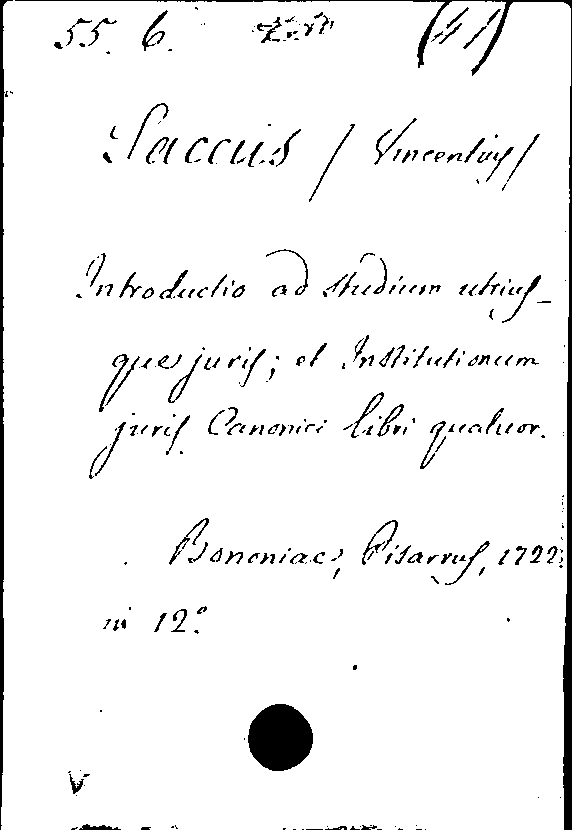 55. 6. (41)
Saccus / Vincentius /
Introductio ad studium utrius-
que juris; et Institutionum
juris Canonici libri quatuor.
Bononiae, Pisarrus, 1722.
in 12.°
V